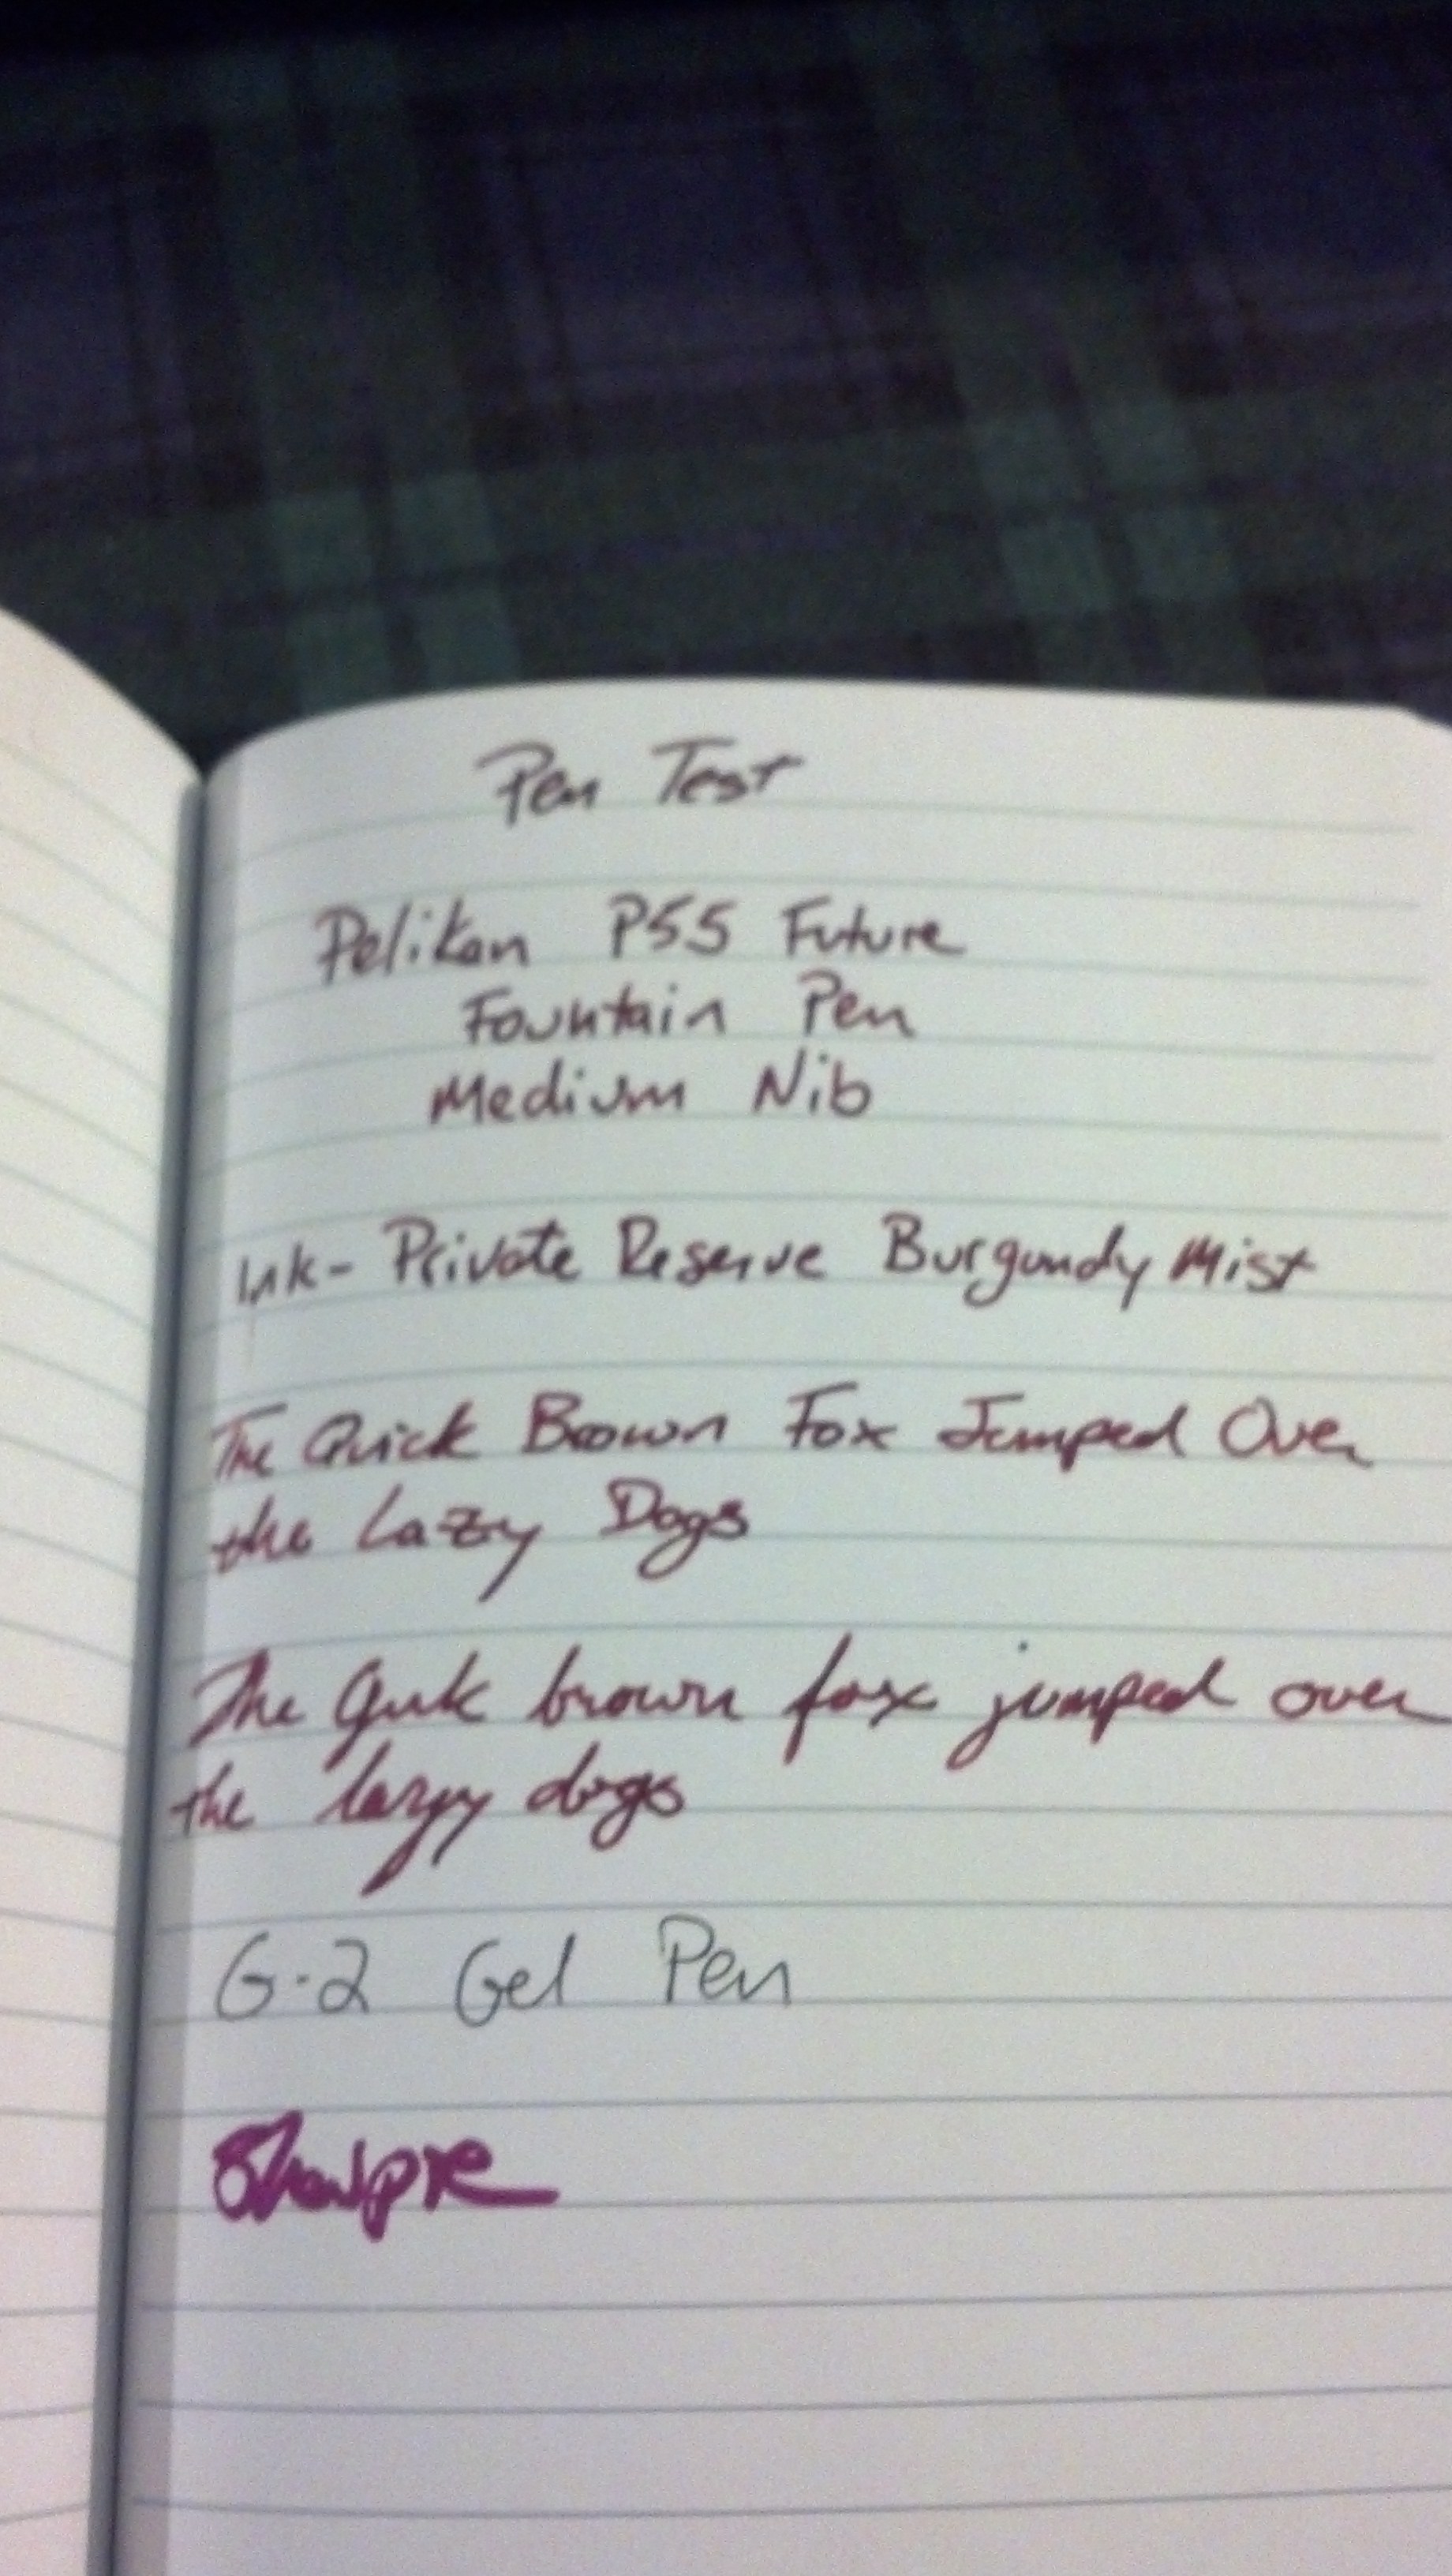 Pen Test
Pelikan P55 Future
Fountain Pen
Medium Nib
Ink- Private Reserve Burgundy Mist
The Quick Brown Fox Jumped Over
the Lazy Dogs
The Quik brown fox jumped over
the lazy dogs
G-2 Gel Pen
Sharpie